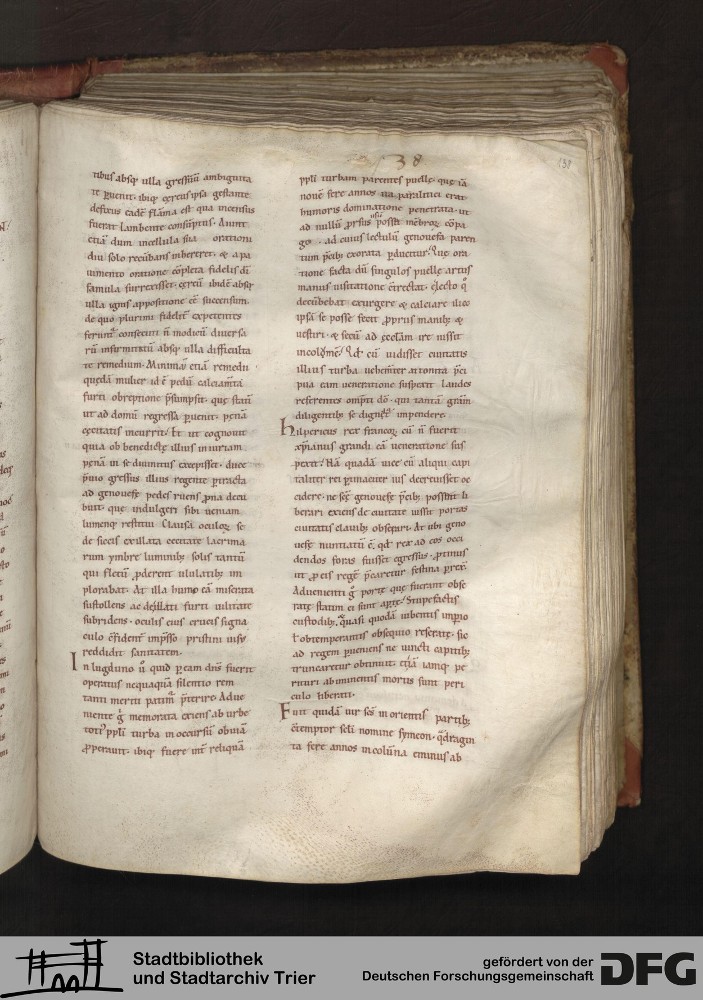 138
138
tibus absq; ulla gressuū ambiguita
te ꝑuenit. ibiq; cereus ipsa gestante
defixus eadē flāma est qua incensus
fuerat lambente consūptus. Aiunt
etiā dum incellula sua orationi
diu solo recūbans inhereret. & a pa
uimento oratione cōpleta fidelis dī
famula surrexisset. cereū ibidē absq;
ulla ignis appositione eē succensum.
de quo plurimi fideliter expetentes
consecuti n̄ modicū diuersa
rū infirmitatū absq; ulla difficulta
te remedium. etiā
quędā mulier id ē pedū calciamta
furti obreptione p̄sumpsit. quę statī
ut ad domū regressa ꝑuenit. penā
cecitatis incurrit. Et ut cognouit
quia ob benedictę illius iniuriam
penā in se diuinitus excepisset. duce
p̄uio gressus illius regente ptracta
ad genouefę pedes ruens ꝓna decu
buit. que indulgeri sibi ueniam
lumenq; restitui. Clausa oculoꝝ se
de siccis exillata cecitate lacrima
rum ymbre luminib; solis tantū
qui fletū ꝓderent ululatib; im
plorabat. At illa humo eā miserata
sustollens ac furti uilitate
subridens. oculis eius crucis signa
culo pristini uisu
reddidit sanitatem.
In lugduno ū quid ꝑ eam dn̄s fuerit
operatus nequaquā silentio rem
tanti meriti patim̄ p̄terire. Adue
niente g̊ memorata extens ab urbe
toti ppli turba in occursū obuiā
ꝓperaunt. ibiq; fuere int̄ reliquā
ppli turbam parentes puellę. quę iā
nouē fere annos ita paralitici erat
humoris dominatione penetrata. ut
ad nullū ꝓrsus usū posset mēbroꝝ cōpa
go. ad cuius lectulū genouefa paren
tum p̄cib; exorata ꝑducitur. Quę ora
tione facta dū singulos puellę artus
manus uisitatione cōtrectat. electo q̊
decūbebat exurgere & calciare ilico
ipsā se posse fecit ꝓpriis manib; &
uestiri. & secū ad ecclam ire iussit
incolomē. Id cū uidisset ciuitatis
illius turba uehemter attonita p̄ci
pua eam ueneratione suspexit laudes
referentes omp̄ti dō. qui tantā grām
diligentib; se impendere.
hilpericus rex francoꝝ cū n̄ fuerit
xp̄ianus grandi eā ueneratione sus
pexit. Nā quadā uice cū aliqui capi
taliter rei ꝑimi iussi decreuisset oc
cidere. ne scę genouefę p̄cib; possint li
berari exiens de ciuitate iussit portas
ciuitatis clauib; obserari. At ubi geno
uefę nuntiatū ē. qd̄ rex ad eos occi
dendos foras fuisset egressus. ꝓtinus
ut ꝓ eis regē p̄caretur festina
Aduenienti g̊ portę quę fuerant obse
ratę statim ei sunt aptę. Stupefactis
custodib; quasi quodā iubentis impio
t̄ obtemperantis obsequio reserate. sic
ad regem ꝑueniens ne uincti capitib;
truncaretur obtinuit. &iā iamq; pe
rituri ab imminenti mortis sunt peri
culo liberati.
Fuit quidā uir scs̄ in orientis partib;
cōtemptor scli nomine symeon. qdragin
ta fere annos in colūna eminus ab
Stadtbibliothek
und Stadtarchiv Trier
gefördert von der
Deutschen Forschungsgemeinschaft
DFG